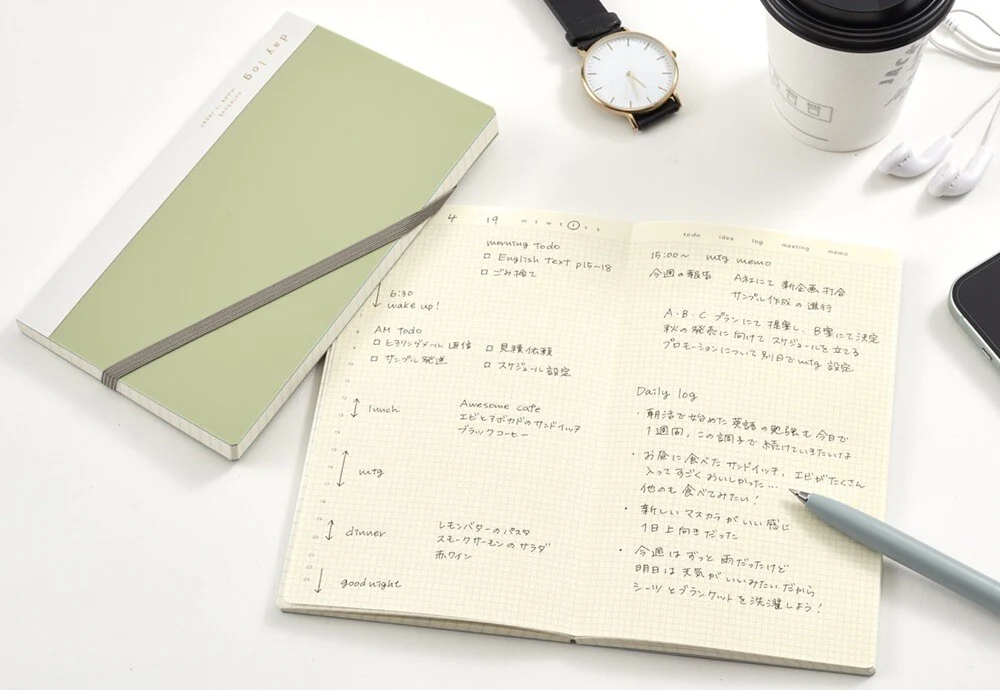 day log
notebook
4 19 m t w t f s s
morning todo
□ English text P15~18
□ ごみ捨て
6:30
wake up!
AM todo
□ ヒヤリングメール返信 □ 見積依頼
□ サンプル発送 □ スケジュール設定
lunch
Awesome cafe
エビとアボカドのサンドイッチ
ブラックコーヒー
mtg
dinner
レモンバターのパスタ
スモークサーモンのサラダ
赤ワイン
good night
todo idea log meeting memo
15:00~ mtg memo
今週の報告 A社にて 新企画打合
サンプル作成の進行
A・B・C プランにて提案し、B案にて決定
秋の発売に向けてスケジュールを立てる
プロモーションについて別日でmtg設定
Daily log
・朝活で始めた英語の勉強も今日で
1週間、この調子で続けていきたいな
・お昼に食べたサンドイッチ、エビがたくさん
入ってすごくおいしかった…
他のも食べてみたい!
・新しいマスカラがいい感じ
1日上向きだった
・今週はずっと雨だったけど
明日は天気がいいみたいだから
シーツとブランケットを洗濯しよう!